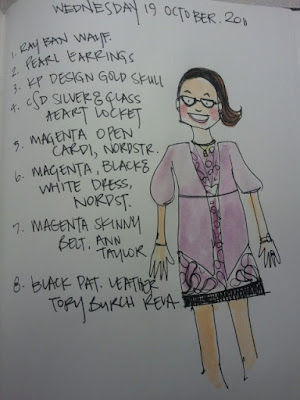 WEDNESDAY 19 OCTOBER. 201
1. RAY BAN WAYF.
2. PEARL EARRINGS
3. KP DESIGN GOLD SKULL
4. CSD SILVER & GLASS
HEART LOCKET
5. MAGENTA OPEN
CARDI, NORDSTR.
6. MAGENTA, BLACK &
WHITE DRESS,
NORDST.
7. MAGENTA SKINNY
BELT, ANN
TAYLOR
8. BLACK PAT. LEATHER
TORY BURCH REVA